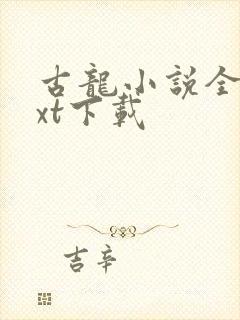 古龍小説全
xt下載
吉辛